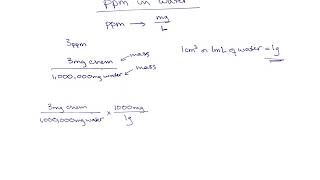 ppm in water
ppm → mg/L
3ppm
3mg chem ← mass
1,000,000mg water ← mass
1cm³ or 1mL of water = 1g
3mg chem / 1,000,000mg water × 1000mg / 1g